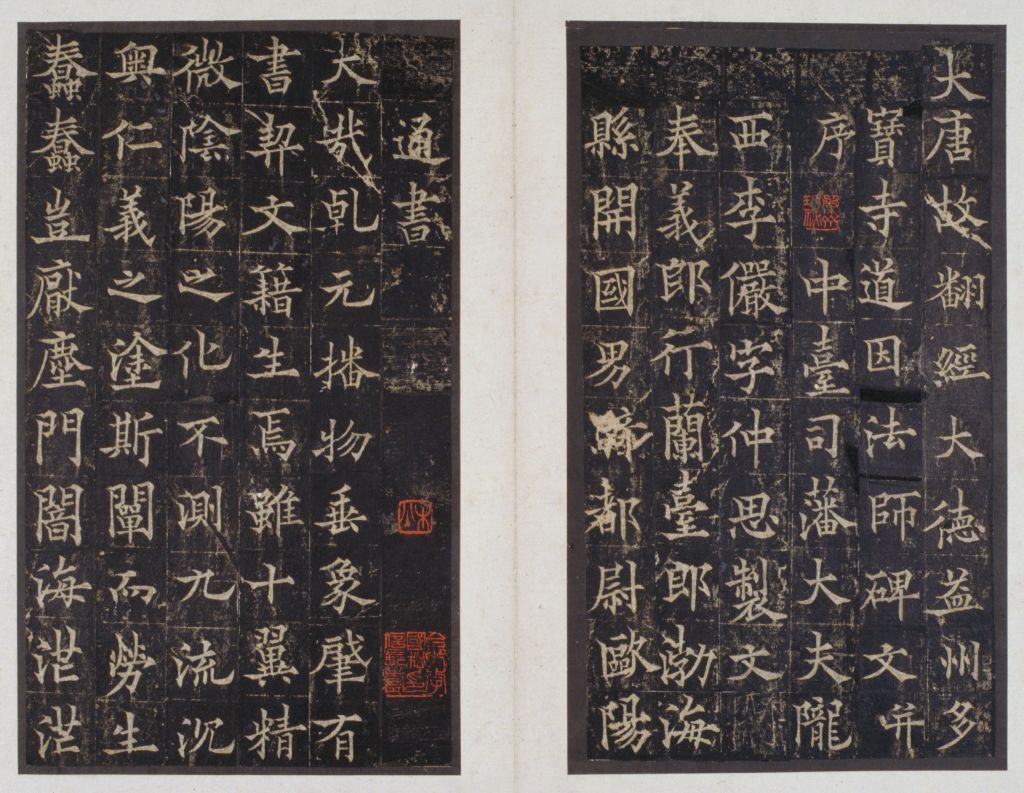 大唐故翻經大德益州多
寶寺道因法師碑文并
序 中臺司藩大夫隴
西李儼字仲思製文
奉義郎行蘭臺郎渤海
縣開國男騎都尉歐陽
通書
大哉乹元播物垂象肇有
書契文籍生焉雖十翼精
微陰陽之化不測九流沉
奥仁義之塗斯闡而勞生
蠢蠢豈厭塵門闇海茫茫